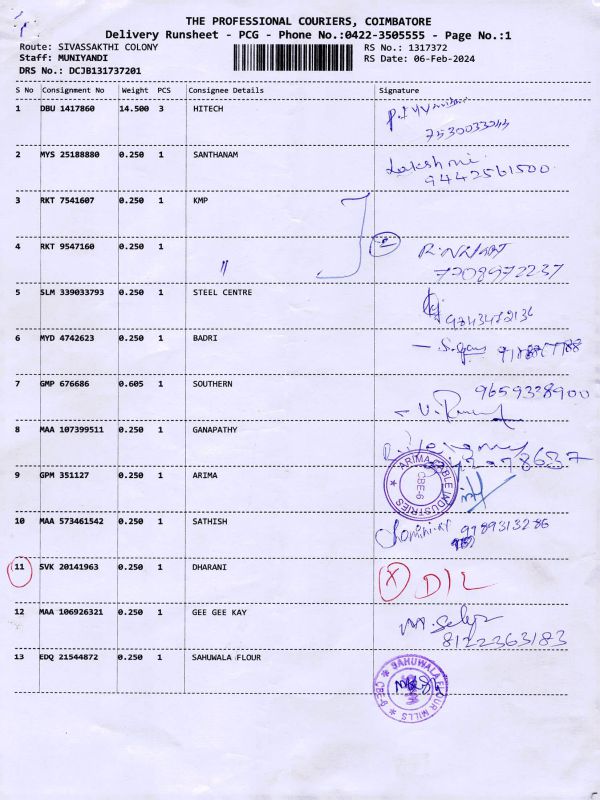 THE PROFESSIONAL COURIERS, COIMBATORE
Delivery Runsheet - PCG - Phone No.:0422-3505555 - Page No.:1
Route: SIVASSAKTHI COLONY RS No.: 1317372
Staff: MUNIYANDI RS Date: 06-Feb-2024
DRS No.: DCJB131737201
S No Consignment No Weight PCS Consignee Details Signature
1 DBU 1417860 14.500 3 HITECH
7530033044
2 MYS 25188880 0.250 1 SANTHANAM Lakshmi
9442561500
3 RKT 7541607 0.250 1 KMP
4 RKT 9547160 0.250 1 "
7208972237
5 SLM 339033793 0.250 1 STEEL CENTRE
9843472136
6 MYD 4742623 0.250 1 BADRI
7 GMP 676686 0.605 1 SOUTHERN 9659328900
8 MAA 107399511 0.250 1 GANAPATHY
9 GPM 351127 0.250 1 ARIMA ARIMA CABLE INDUSTRIES CBE-6
10 MAA 573461542 0.250 1 SATHISH 9789313286
11 SVK 20141963 0.250 1 DHARANI X D/L
12 MAA 106926321 0.250 1 GEE GEE KAY
8122363183
13 EDQ 21544872 0.250 1 SAHUWALA FLOUR SAHUWALA FLOUR MILLS CBE-6